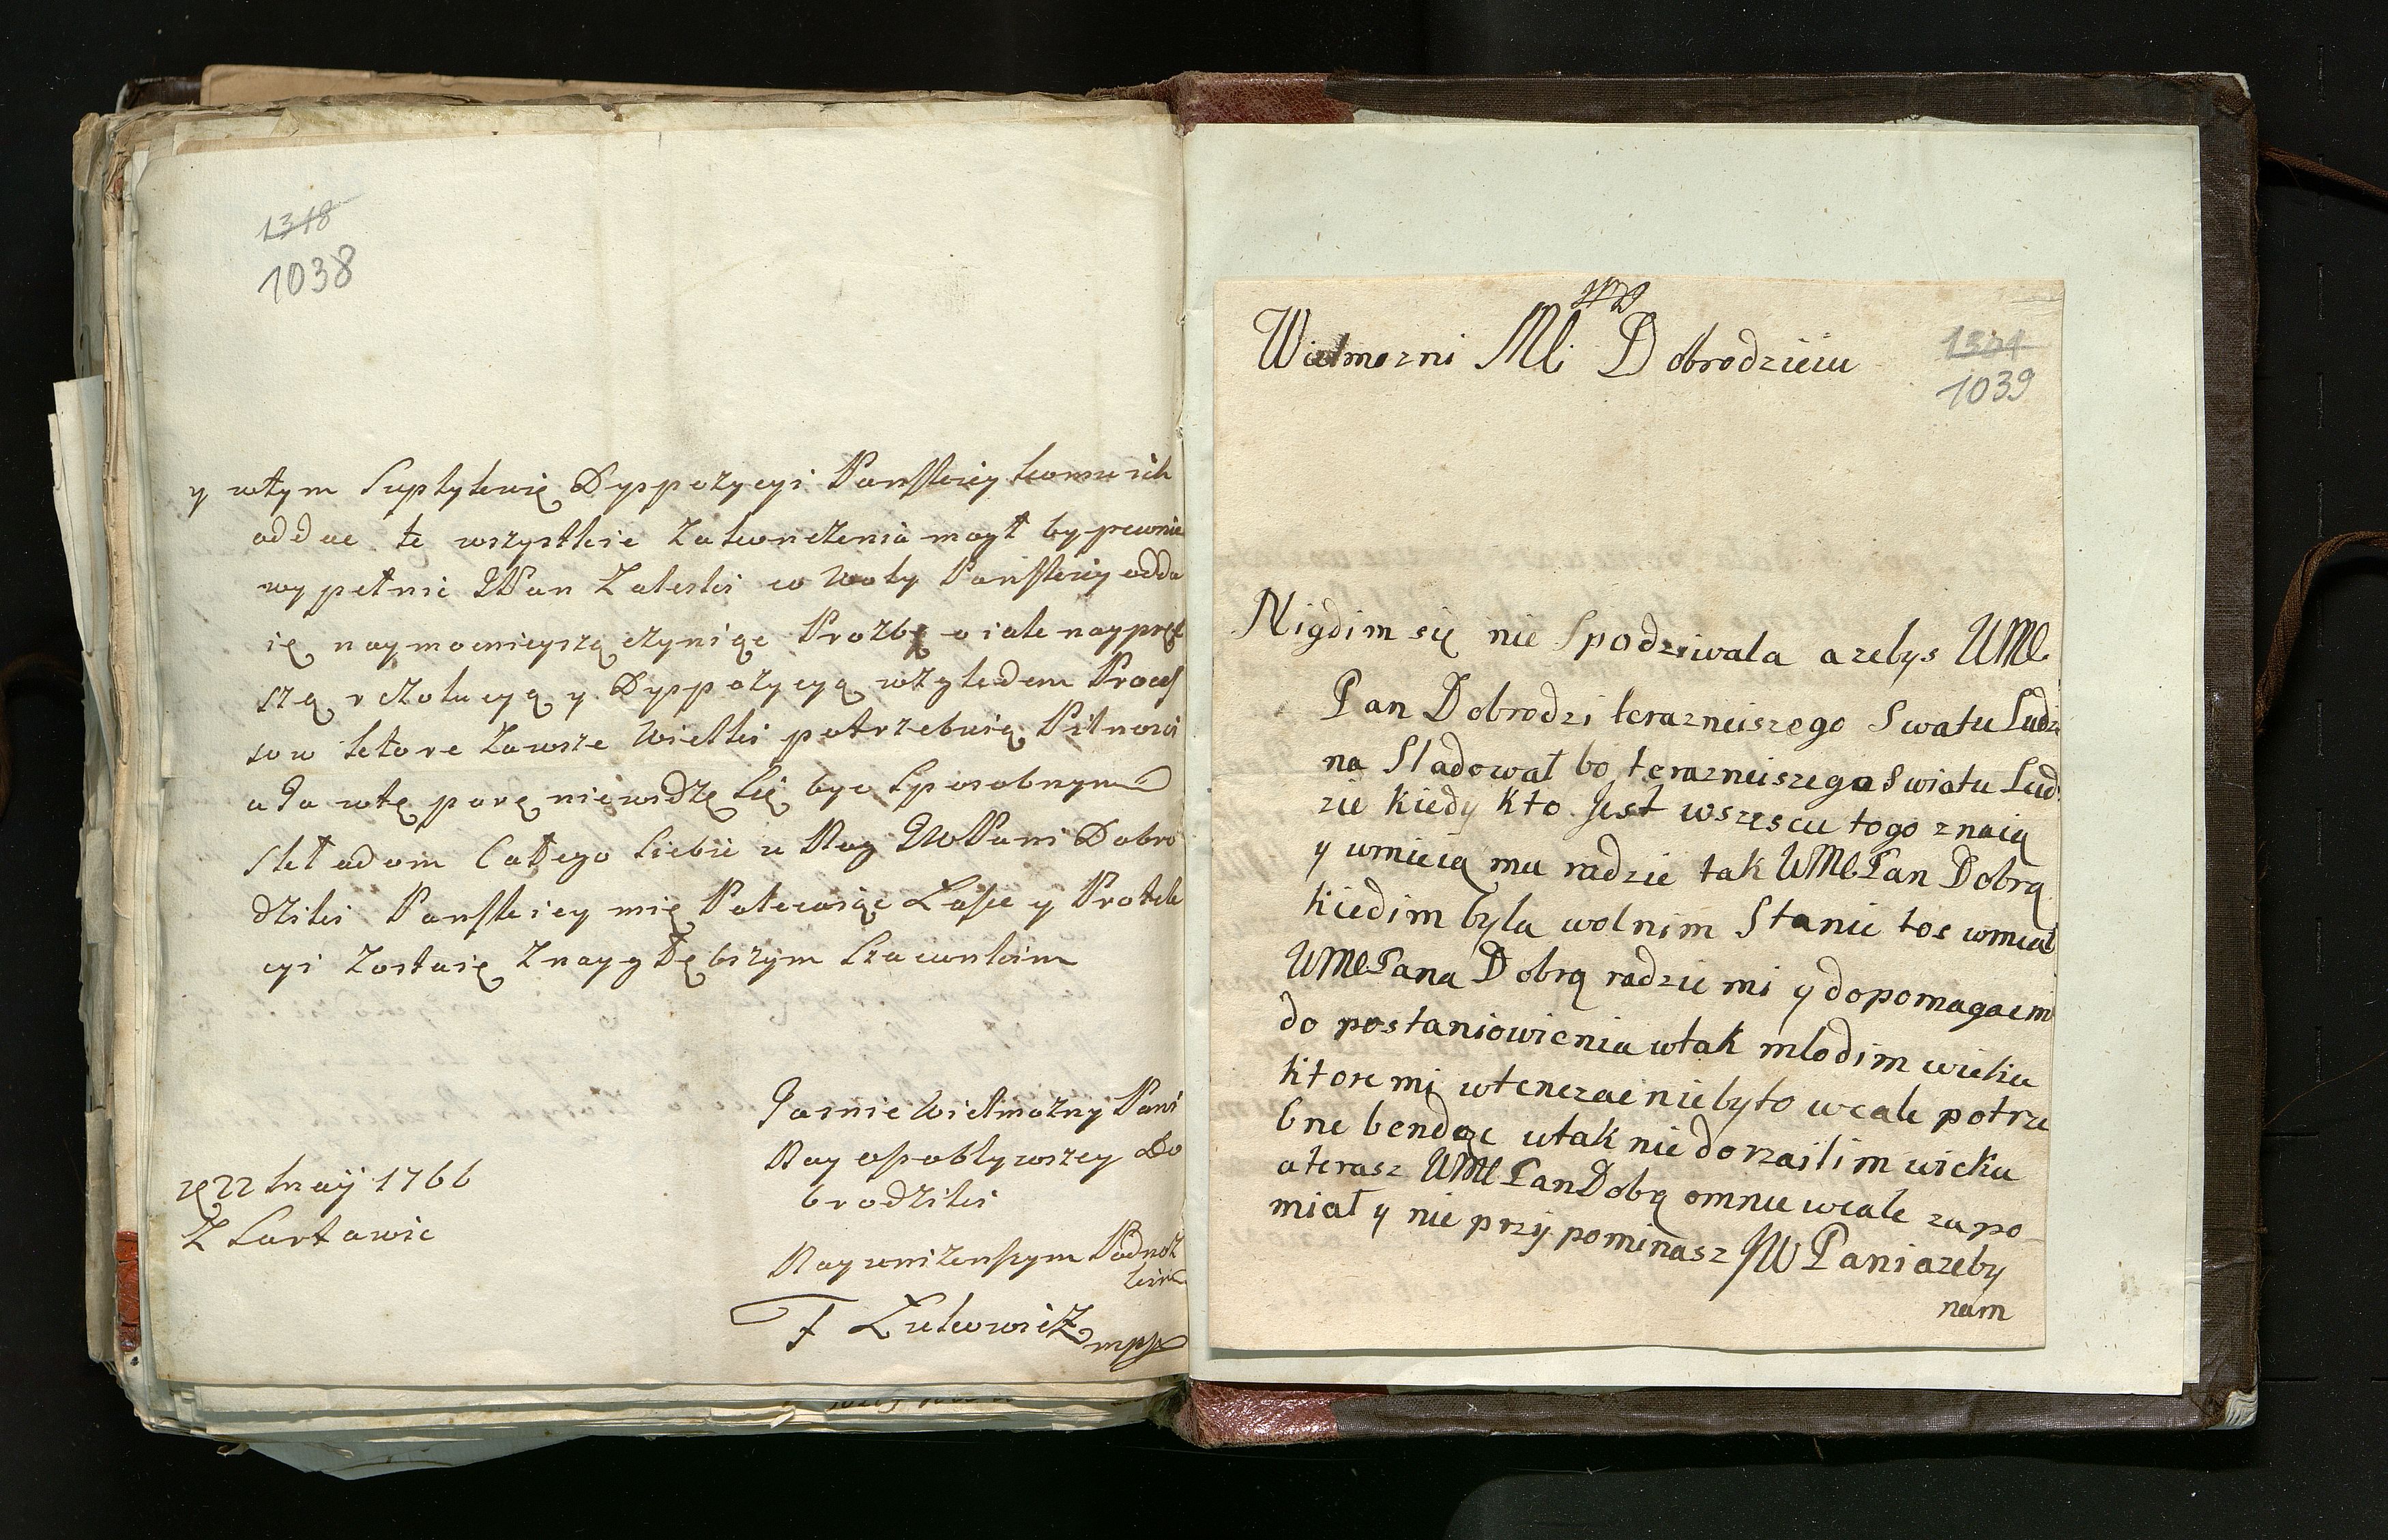 1318
1038
y wtym Suplykuię Dyspozycyi Pańskiey komu ich
oddac te wszystkie Zatrudnienia mogł by pewnie
wypełnic JWPan Zaleski co Woly Pańskiey odda
ię naymocnieyszą czyniąc Prozbę o iak naypręt
szą rezolucyą y Dyspozycyą względem Proces
sow ktore zawsze Wielki potrzebuią Pilnosci
a Ja wtę porę niewidzę Się byc Sposobnym
Składam Całego Siebie u Nog JWPani Dobro
dziki Pańskiey mię Polecaiąc Łasce y Protek
cyi Zostaię Znaygłębszym Szacunkiem
Jasnie Wielmożny Pani
Nay osobliwszey Do
brodziki
Nayuniżenszym Podnoż
kiem
F Zukowicz mpp
22 May 1766
Z Sartawic
Wielmozni MCi Dobrodzieiu
1321
1039
Nigdim się nie Spodziwala azebys UMC
Pan Dobrodzi terazneiszego Swatu Ludzi
na Sladował bo terazneiszego Swiatu Lud
zie kiedy kto Jest wszęscu togo znaią
y umieią mu radzie tak UMC Pan Dobrą
kiedim byla wolnim Stanie tos umiał
UMC Pana Dobrą radzie mi y dopomagac mi
do postaniowienia wtak mlodim wieku
ktore mi wtenczac niebyto wcale potrze
bne bendąc wtak nie dorzailim wieku
aterasz UMC Pan Dobą omnie wcale zapo
miał y nie przypominasz JW Pani azeby
nam